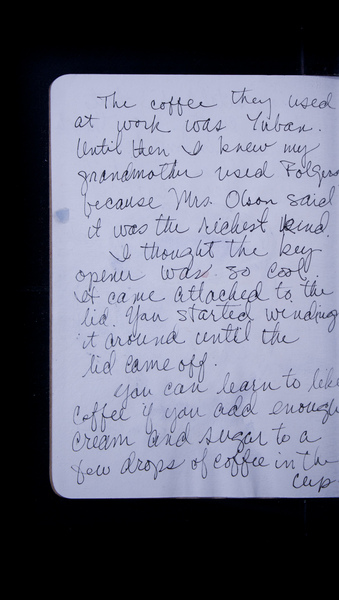 The coffee they used
at work was Yuban.
Until then I knew my
grandmother used Folgers
because Mrs. Olson said
it was the richest kind.
I thought the key
opener was so cool.
It came attached to the
lid. You started winding
it around until the
lid came off.
You can learn to like
coffee if you add enough
cream and sugar to a
few drops of coffee in the
cup